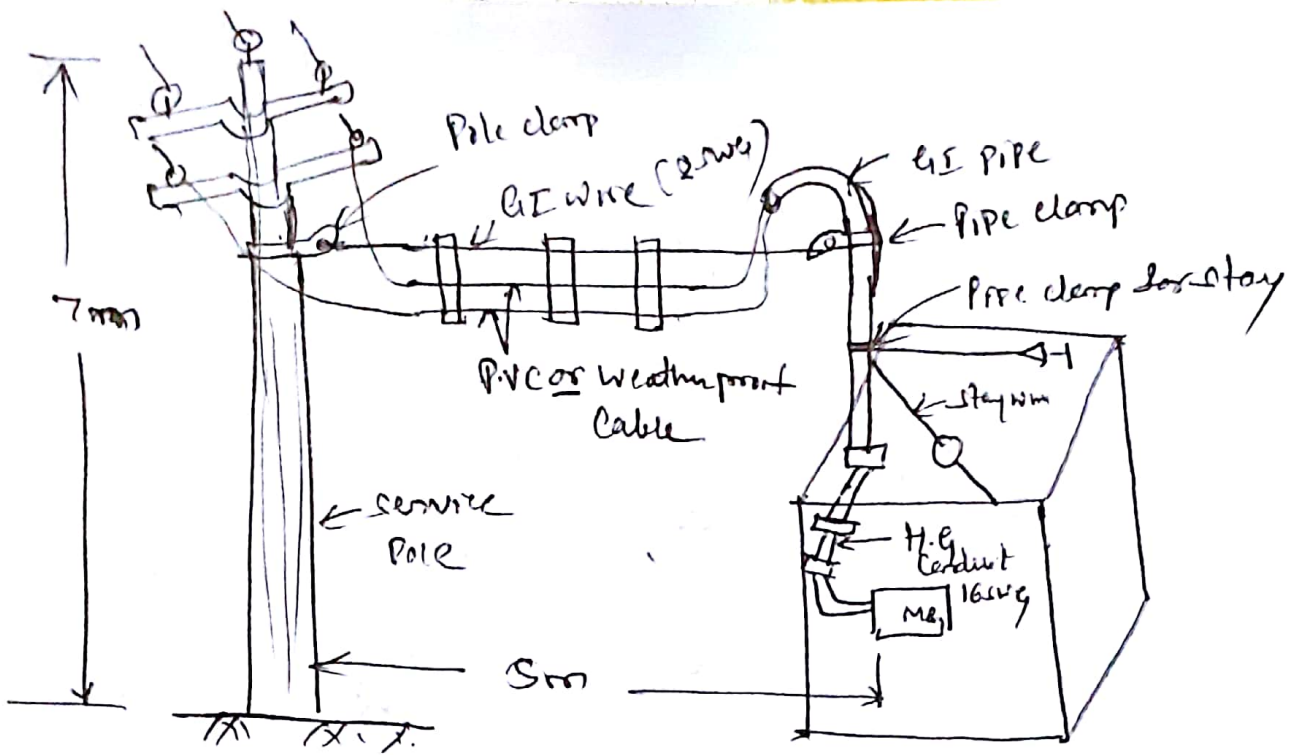 Pole clamp
GI wire (8 SWG)
GI pipe
Pipe clamp
Pipe clamp for stay
7 m
P.V.C or Weatherproof
Cable
stay wire
service
Pole
H.G
Conduit
16 SWG
MB,
5m